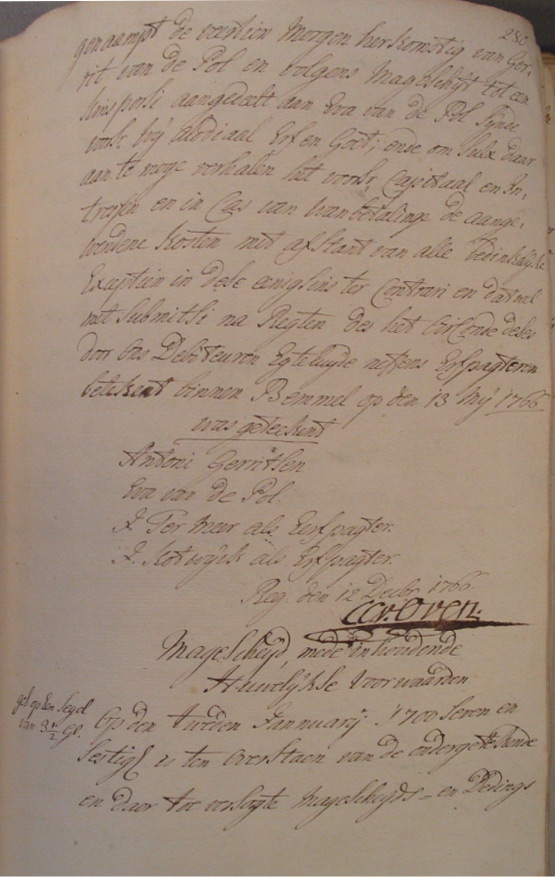 280
genaampt de veertien Morgen herkomstig van Ger-
rit van de Pol en volgens Magescheijt tot een
kinsportie aangedeelt aan Eva van de Pol sijnde
voorsz vrij alodiaal Erf en Goet; ende om sulx daar
aan te moge verhalen het voorsz Capitaal en In-
tressen en in Cas van wanbetalinge de aange-
wendene Kosten met afstant van alle
Exceptien in dese enigsins ter Contrarie en dat met
met submissie na Regten des het oirconde deses
door ons Debiteuren Egteluijde neffens Erfpagteren
betekent binnen Bemmel op den 13 Meij 1766
was geteekent
Antoni Gerritsen
Eva van de Pol.
J. Ter Meer als Eerfpagter.
J. Kolwijck als Erfpagter.
Reg. den 12 Decbr. 1766
CCv. Oven.
Magescheijd, mede inhoudende
Huwelijkse Voorwaarden
op Een Segel
van 3 1/2 gl.
Op den tweden Jannuarij 1700 seven en
sestigh is ten overstaen van de ondergetekende
en daer toe versogte Magescheijds- en Dedings